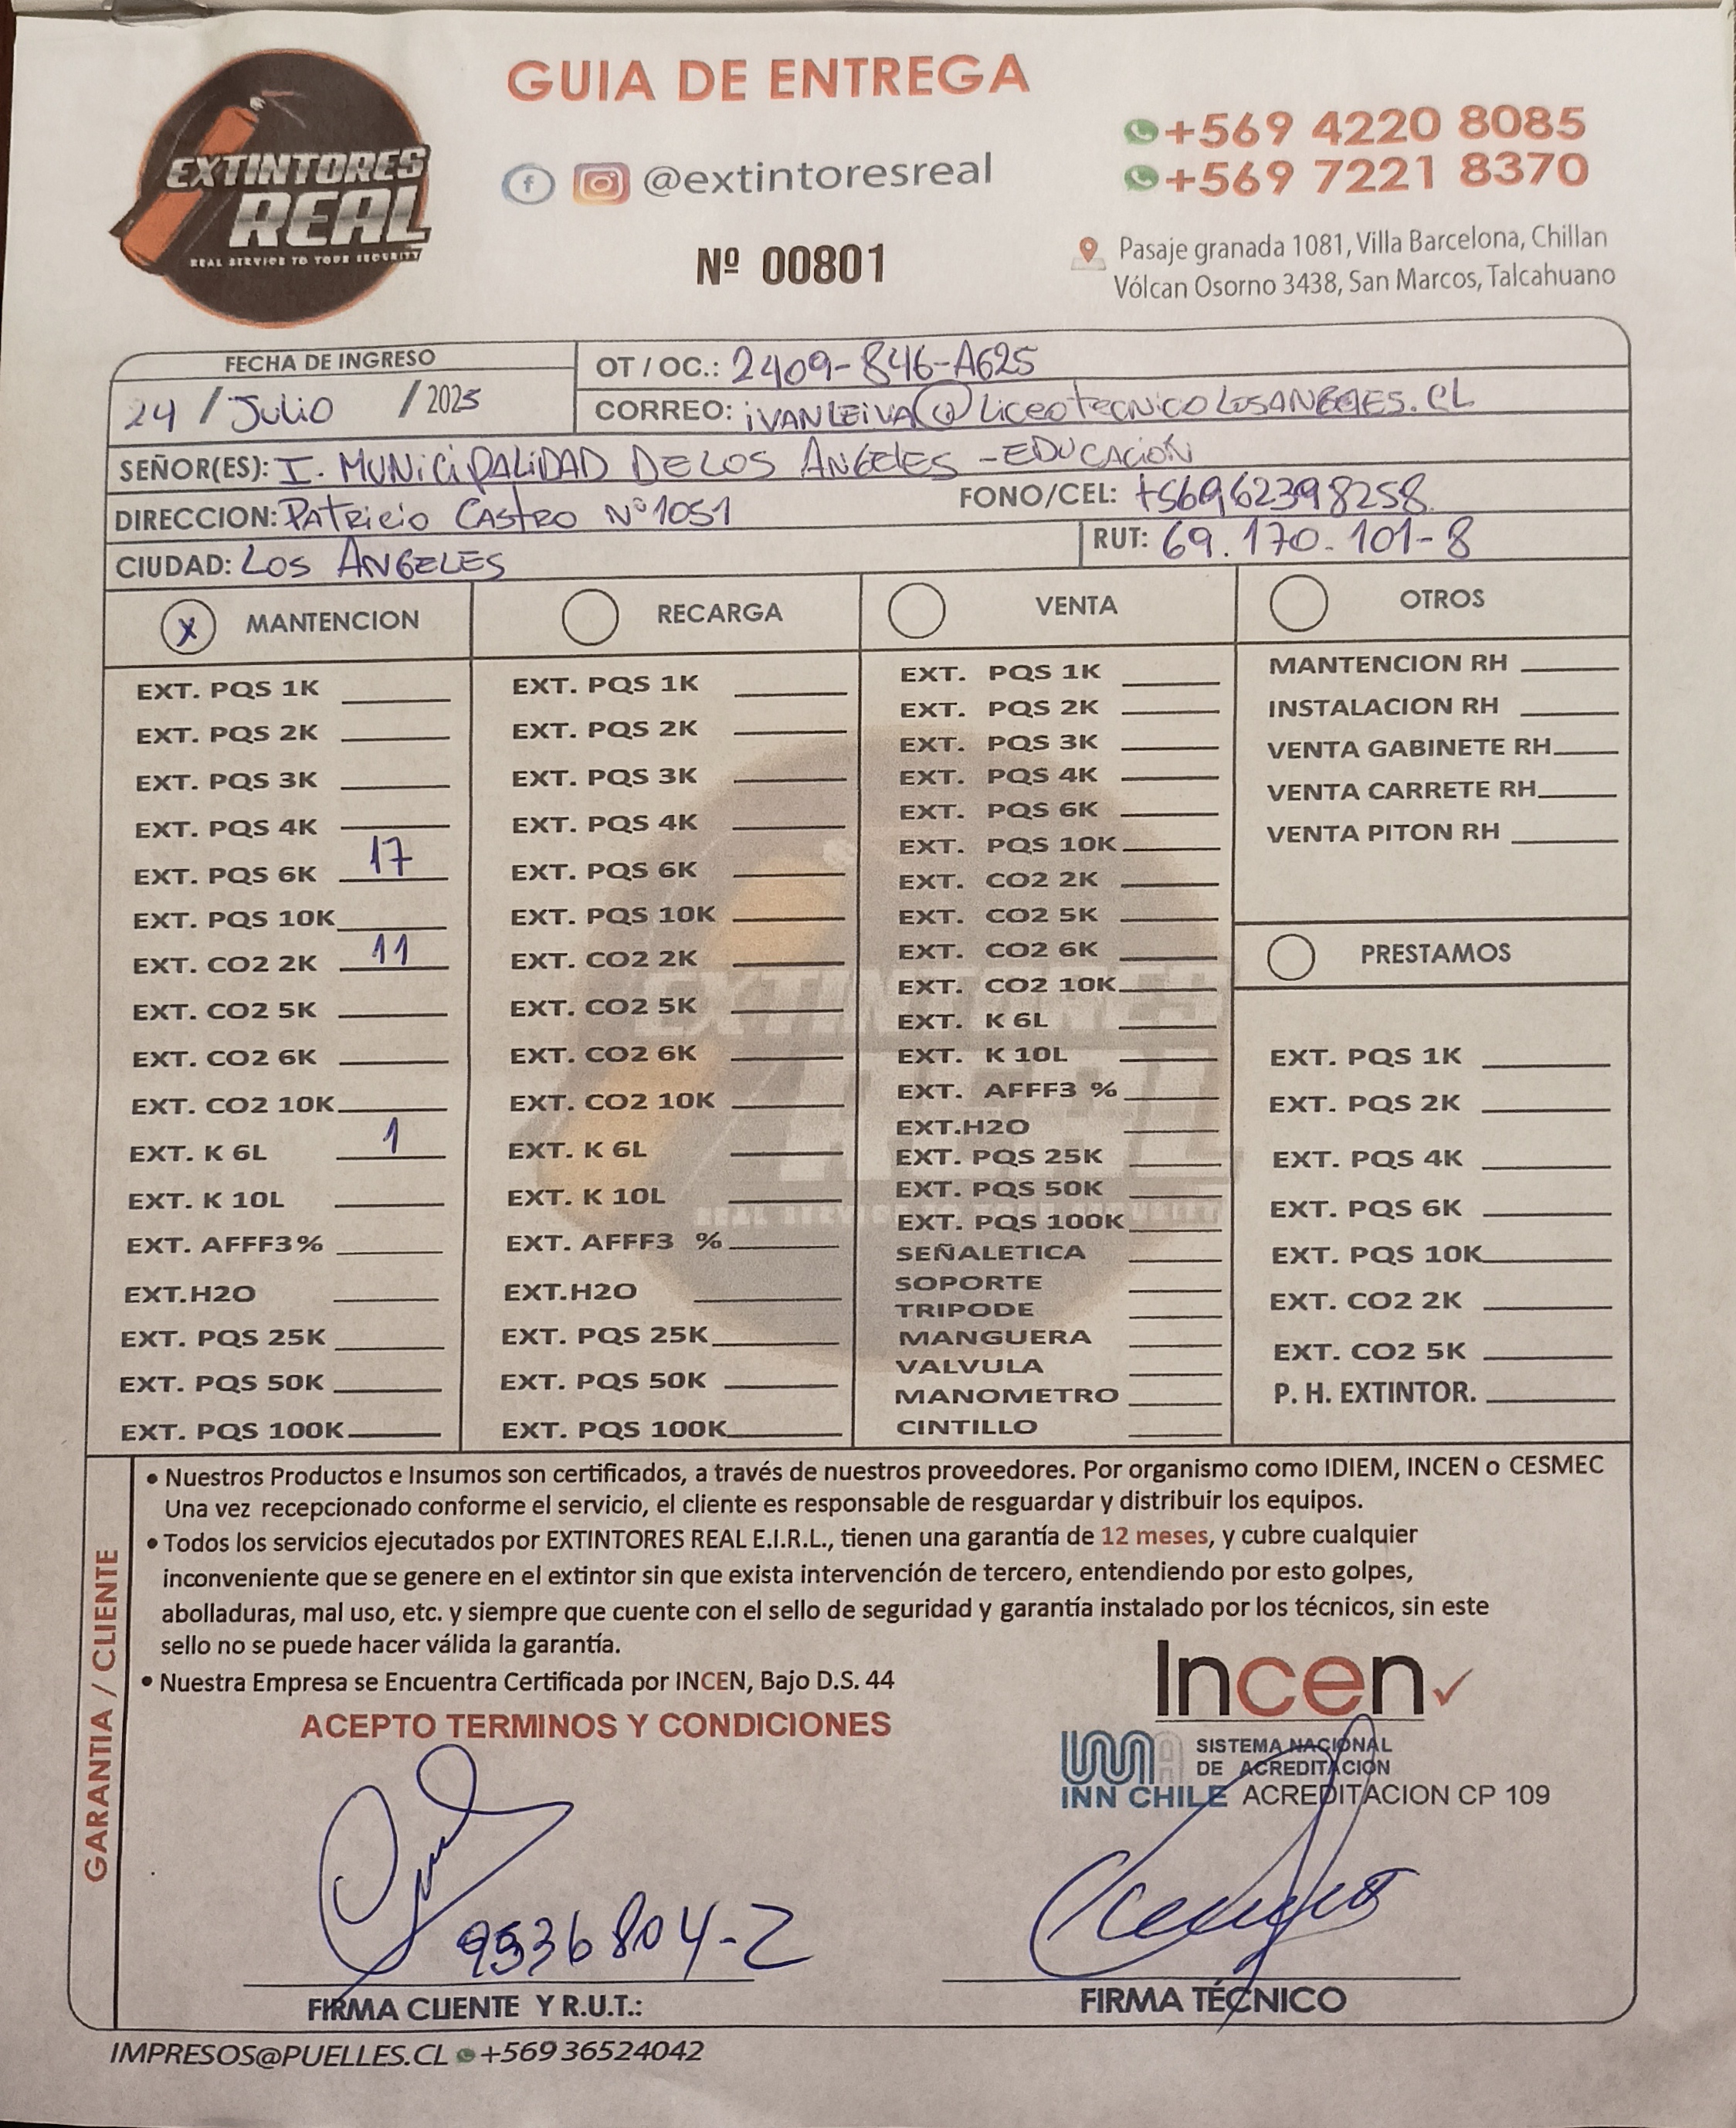 EXTINTORES
REAL
REAL SERVICE TO YOUR SECURITY
GUIA DE ENTREGA
@extintoresreal
Nº 00801
+569 4220 8085
+569 7221 8370
Pasaje granada 1081, Villa Barcelona, Chillan
Vólcan Osorno 3438, San Marcos, Talcahuano
FECHA DE INGRESO
24 / Julio / 2025
OT / OC.: 2409-846-AG25
CORREO: iVANLEiVA@LiceotecnicoLosANGELES.CL
SEÑOR(ES): I. MUNiCiPALiDAD DE LOS ANGELES - EDUCACIÓN
DIRECCION: PAtRicio CAStRO Nº1051
FONO/CEL: +56962398258
CIUDAD: LOS ANGELES
RUT: 69.170.101-8
X MANTENCION
EXT. PQS 1K
EXT. PQS 2K
EXT. PQS 3K
EXT. PQS 4K
EXT. PQS 6K 17
EXT. PQS 10K
EXT. CO2 2K 11
EXT. CO2 5K
EXT. CO2 6K
EXT. CO2 10K
EXT. K 6L 1
EXT. K 10L
EXT. AFFF3%
EXT.H2O
EXT. PQS 25K
EXT. PQS 50K
EXT. PQS 100K
RECARGA
EXT. PQS 1K
EXT. PQS 2K
EXT. PQS 3K
EXT. PQS 4K
EXT. PQS 6K
EXT. PQS 10K
EXT. CO2 2K
EXT. CO2 5K
EXT. CO2 6K
EXT. CO2 10K
EXT. K 6L
EXT. K 10L
EXT. AFFF3 %
EXT.H2O
EXT. PQS 25K
EXT. PQS 50K
EXT. PQS 100K
VENTA
EXT. PQS 1K
EXT. PQS 2K
EXT. PQS 3K
EXT. PQS 4K
EXT. PQS 6K
EXT. PQS 10K
EXT. CO2 2K
EXT. CO2 5K
EXT. CO2 6K
EXT. CO2 10K
EXT. K 6L
EXT. K 10L
EXT. AFFF3 %
EXT.H2O
EXT. PQS 25K
EXT. PQS 50K
EXT. PQS 100K
SEÑALETICA
SOPORTE
TRIPODE
MANGUERA
VALVULA
MANOMETRO
CINTILLO
OTROS
MANTENCION RH
INSTALACION RH
VENTA GABINETE RH
VENTA CARRETE RH
VENTA PITON RH
PRESTAMOS
EXT. PQS 1K
EXT. PQS 2K
EXT. PQS 4K
EXT. PQS 6K
EXT. PQS 10K
EXT. CO2 2K
EXT. CO2 5K
P. H. EXTINTOR.
EXTINTORES
REAL
REAL SERVICE TO YOUR SECURITY
GARANTIA / CLIENTE
• Nuestros Productos e Insumos son certificados, a través de nuestros proveedores. Por organismo como IDIEM, INCEN o CESMEC
Una vez recepcionado conforme el servicio, el cliente es responsable de resguardar y distribuir los equipos.
• Todos los servicios ejecutados por EXTINTORES REAL E.I.R.L., tienen una garantía de 12 meses, y cubre cualquier
inconveniente que se genere en el extintor sin que exista intervención de tercero, entendiendo por esto golpes,
abolladuras, mal uso, etc. y siempre que cuente con el sello de seguridad y garantía instalado por los técnicos, sin este
sello no se puede hacer válida la garantía.
• Nuestra Empresa se Encuentra Certificada por INCEN, Bajo D.S. 44
ACEPTO TERMINOS Y CONDICIONES
Incen
SISTEMA NACIONAL
DE ACREDITACION
INN CHILE ACREDITACION CP 109
9536804-2
FIRMA CLIENTE Y R.U.T.:
FIRMA TÉCNICO
IMPRESOS@PUELLES.CL +569 36524042